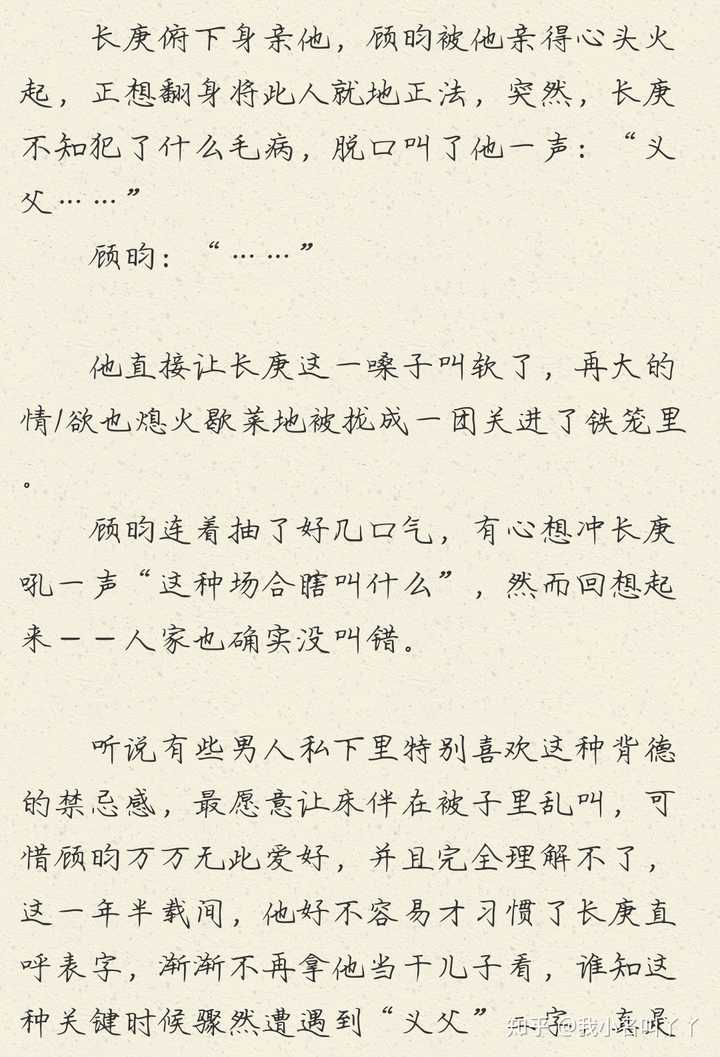 长庚俯下身亲他，顾昀被他亲得心头火
起，正想翻身将此人就地正法，突然，长庚
不知犯了什么毛病，脱口叫了他一声：“义
父……”
顾昀：“……”
他直接让长庚这一嗓子叫软了，再大的
情/欲也熄火歇菜地被拢成一团关进了铁笼里
。
顾昀连着抽了好几口气，有心想冲长庚
吼一声“这种场合瞎叫什么”，然而回想起
来——人家也确实没叫错。
听说有些男人私下里特别喜欢这种背德
的禁忌感，最愿意让床伴在被子里乱叫，可
惜顾昀万万无此爱好，并且完全理解不了，
这一年半载间，他好不容易才习惯了长庚直
呼表字，渐渐不再拿他当干儿子看，谁知这
种关键时候骤然遭遇到“义父”
知乎 @我小名叫丫丫